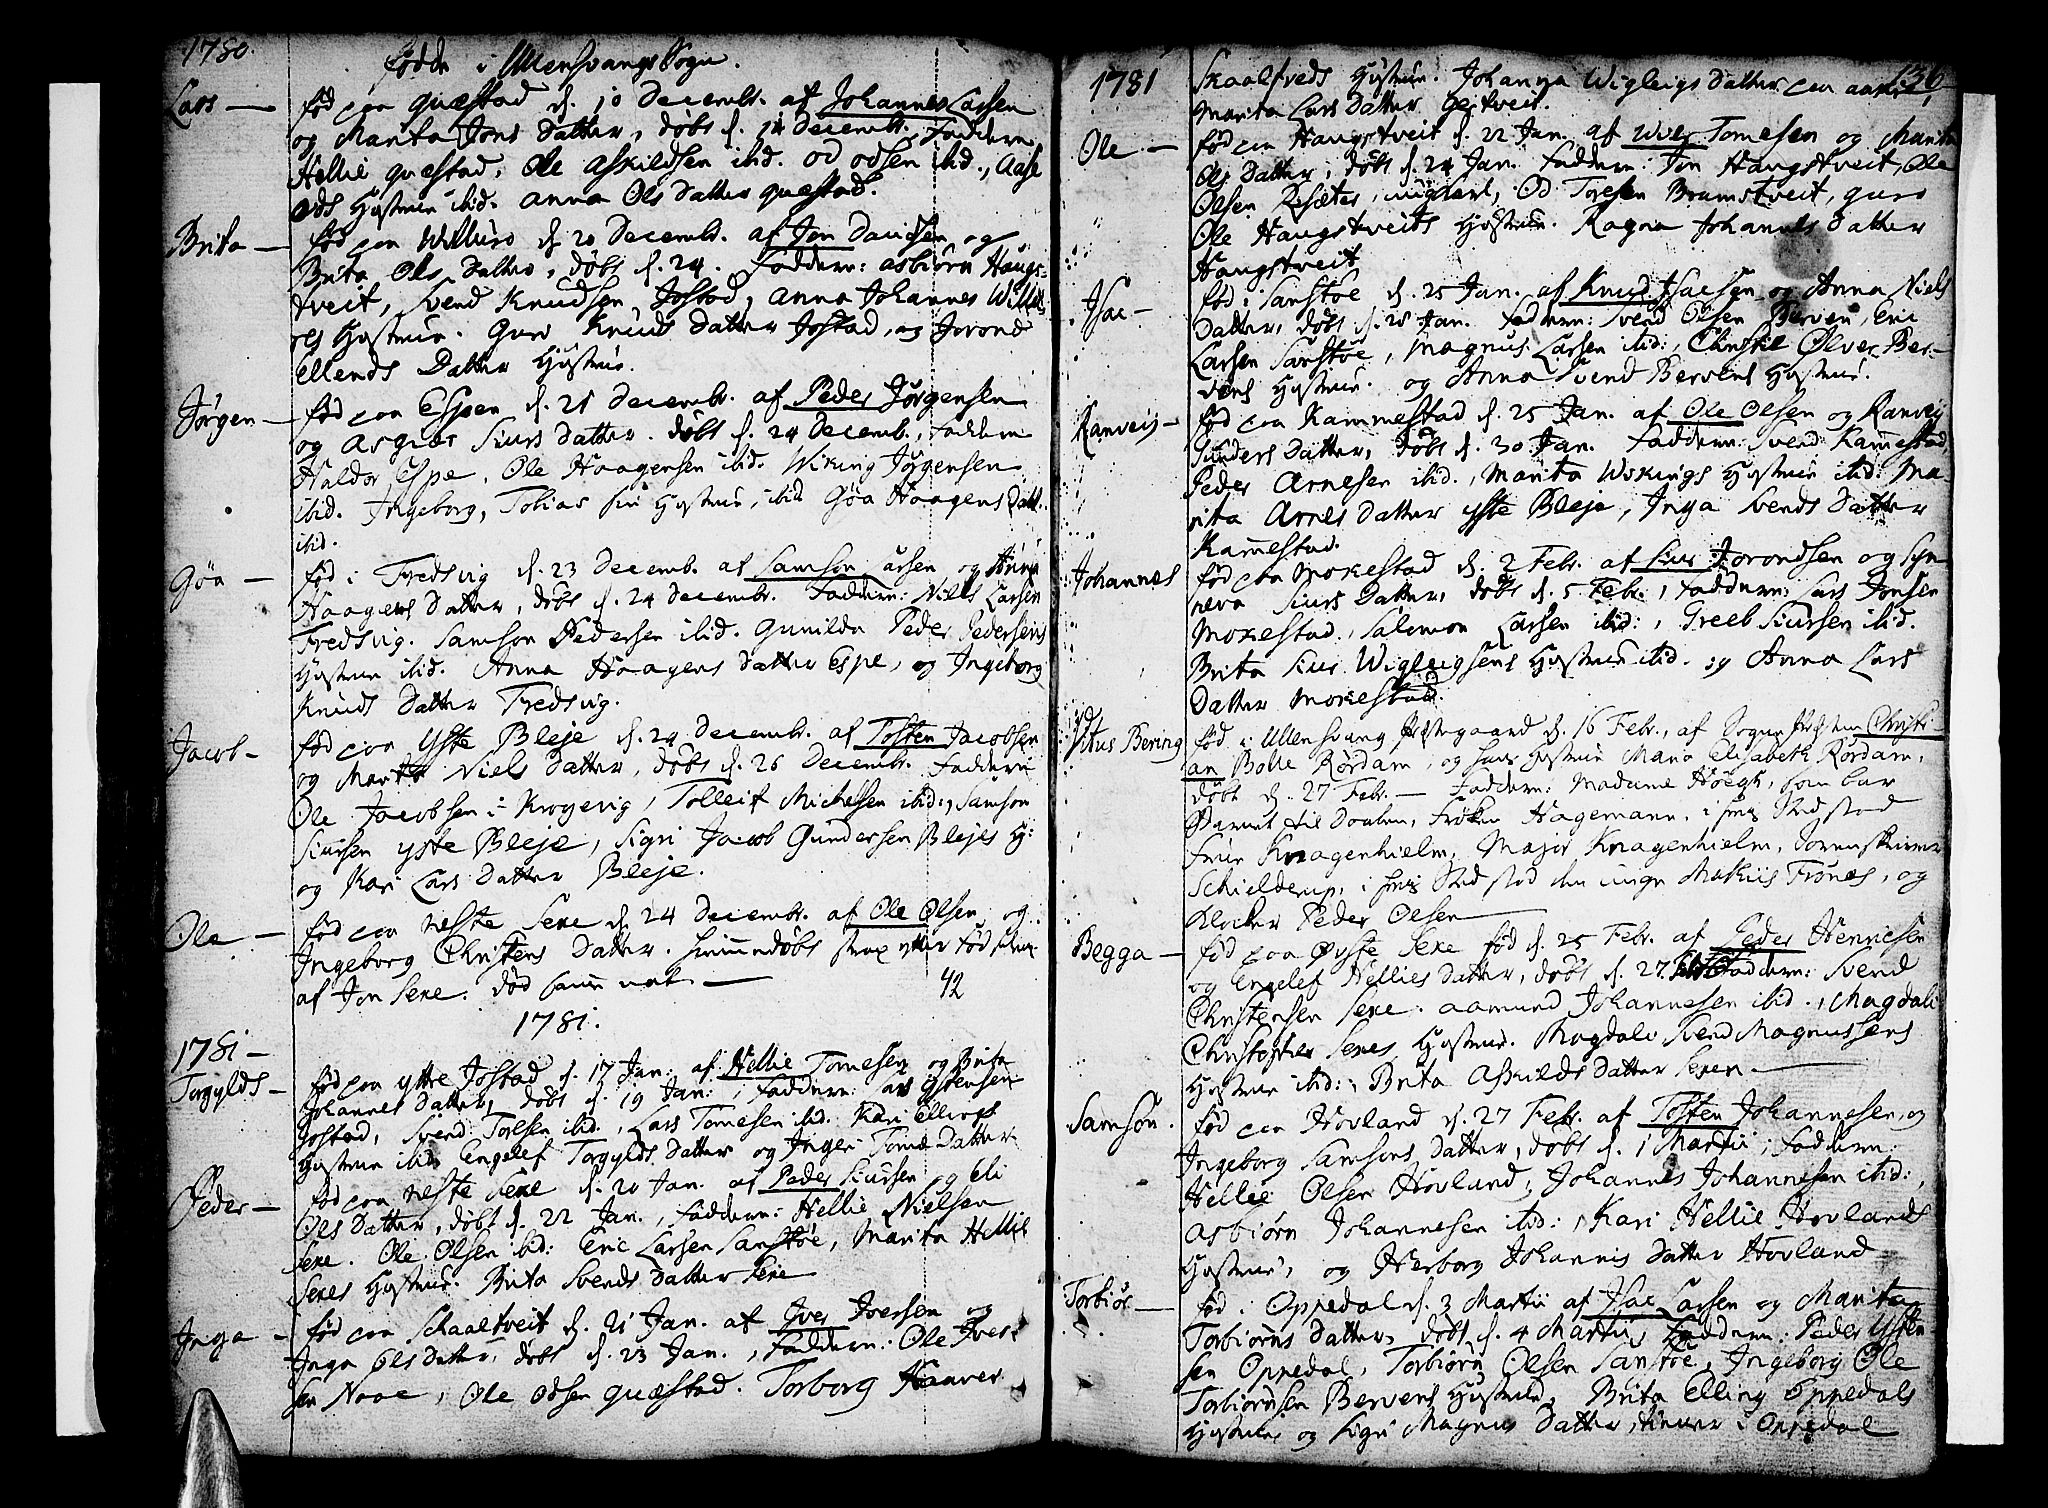 1780.
Fødde i Ullensvangs Sogn.
Lars — fød paa Quæstad d. 10 Decembr. af Johannes Larsen
og Marita Jons Datter, døbt d. 14 Decembr. Faddern
Hellie Quæstad, Ole Askildsen ibid. Od Odsen ibid., Aase
Ods Hustrue ibid. Anna Ols Datter Quæstad.
Brita — fød paa Willure d. 20 Decembr. af Jon Davidsen og
Brita Ols Datter, døbt d. 24. Faddern: Asbiørn Haugs-
tveit, Svend Knudsen Jøstad, Anna Johannes Willu-
res Hustrue. Guro Knuds Datter Jøstad, og Jorond
Ellends Datter Hustrue.
Jørgen — fød paa Espen d. 21 Decembr. af Peder Jørgensen
og Asgier Siurs Datter. døbt d. 24 Decemb., Faddern
Haldor Espe, Ole Haagensen ibid. Wiking Jørgensen
ibid. Ingeborg, Tobias sin Hustrue, ibid Gøa Haagens Datt.
ibid.
Gøa — fød i Fredsvig d. 23 Decemb. af Samson Larsen og Anna
Haagens Datter, døbt d. 24 Decembr. Faddern: Niels Larsen
Fredsvig. Samson Pedersen ibid. Gunilda Peder Pedersens
Hustrue ibid. Anna Haagens Datter Espe, og Ingeborg
Knuds Datter Fredsvig.
Jacob — fød paa Yste Bleje d. 24 Decembr. af Tosten Jacobsen
og Marita Niels Datter, døbt d. 26 Decembr. Faddern
Ole Jacobsen i Krogevig, Tolleif Michelsen ibid:, Samson
Siursen Yste Bleje, Sigri Jacob Gundersen Blejes H:
og Kari Lars Datter Bleje.
Ole — fød paa Neste Sexe d. 24 Decembr. af Ole Olsen, og
Ingeborg Christens Datter. hiemmedøbt strax efter fødselen
af Jon Sexe. død samme nat. — 42
1781.
1781 —
Torgylds — fød paa Yttre Jøstad d. 17 Jan: af Hellie Tomesen og Brita
Johannes Datter, døbt d. 19 Jan:, Faddern: Ystensen
Jøstad, Svend Toresen ibid., Lars Tomesen ibid. Kari Ellings
Hustrue ibid Engelef Torgylds Datter og Inger Tomæ Datter
Peder — fød paa Neste Sexe d. 20 Jan. af Peder Siursen, og Eli
Ols Datter, døbt d. 22 Jan., Faddern: Hellie Nielsen
Sexe. Ole Olsen ibid: Eric Larsen Sanstøe, Marita Hellie
Sexes Hustrue. Brita Svends Datter Sexe
Inga — fød paa Schaaltveit d. 21 Jan. af Iver Iversen og
Inga Ols Datter, døbt d. 23 Jan., Faddern: Ole Iver-
sen Naae, Ole Odsen Quæstad. Torborg Haaver
1781 136
Skaaltveds Hustrue. Johanna Wigleigs Datter
Marita Lars Datter Hestveit.
Ole — fød paa Haugstveit d. 22 Jan. af Tomesen og Marita
Ols Datter, døbt d. 24 Jan. Faddern: Jon Haugstveit, Ole
Olsen Resæter, ungkarl, Od Toresen Bramstveit, Guro
Ole Haugstveits Hustrue. Ragna Johannes Datter
Haugstveit
Isac — fød i Sanstøe d. 25 Jan. af Knud Isacsen og Anna Niels
Datter, døbt d. 28 Jan. Faddern: Svend Olsen Berven, Eric
Larsen Sanstøe, Magnus Larsen ibid:, Christie Ølver Ber-
vens Hustrue. og Anna Svend Bervens Hustrue.
Ranveig — fød paa Kammestad d. 25 Jan. af Ole Olsen og Ranveig
Gunders Datter, døbt d. 30 Jan. Faddern: Svend Kammestad,
Peder Arnesen ibid., Marita Wikings Hustrue ibid: Ma-
rita Arnes Datter Yste Bleje, Inga Svends Datter
Kammestad.
Johannes fød paa Moxestad d. 2 Febr. af Siur Jorondsen og Syn
neva Siurs Datter, døbt d. 5 Febr., Faddern: Lars Jonsen
Moxestad, Salomon Larsen ibid:, Greeb Siursen ibid.
Brita Siur Wigleigsens Hustrue ibid. og Anna Lars
Datter Moxestad.
Vitus Bering fød i Ullensvang Præstegaard d. 16 Febr., af Sogne Præsten Christi-
an Bolle Rørdam, og hans Hustrue Maria Elisabeth Rørdam,
døbt d. 27 Febr. — Faddern: Madame Høegh, som bar
Barnet til Daaben, Frøken Hagemann, i hvis Stedstod
Frue Knagenhielm, Major Knagenhielm, Sorenskriver
Schielderup, i hvis Stedstod den unge Markus Frønæs, og
Klocker Peder Olsen —
Begga — fød paa Øvste Sexe fød d. 25 Febr. af Peder Henricsen
og Engelef Hellies Datter, døbt d. 27. Faddern: Svend
Christensen Sexe. Aamund Johannesen ibid., Magdali
Christopher Sexes Hustrue. Magdali Svend Magnussens
Hustrue ibid:, Brita Askilds Datter Sexen —
Samson. fød paa Hovland d. 27 Febr. af Tosten Johannesen, og
Ingeborg Samsons Datter, døbt d. 1 Martii, Faddern:
Hellie Olsen Hovland, Johannes Johannesen ibid:,
Asbiørn Johannesen ibid:, Kari Hellie Hovlands
Hustrue, og Herborg Johannis Datter Hovland
Torbiør — fød i Oppedal d. 3 Martii af Isac Larsen og Marita
Torbiørns Datter, døbt d. 4 Martii Faddern: Peder Ysten-
sen Oppedal, Torbiørn Olsen Sanstøe, Ingeborg Ole
Torbiørnsen Bervens Hustrue, Brita Elling Oppedals
Hustrue og Sigri Magnus Datter, tiener i Oppedal